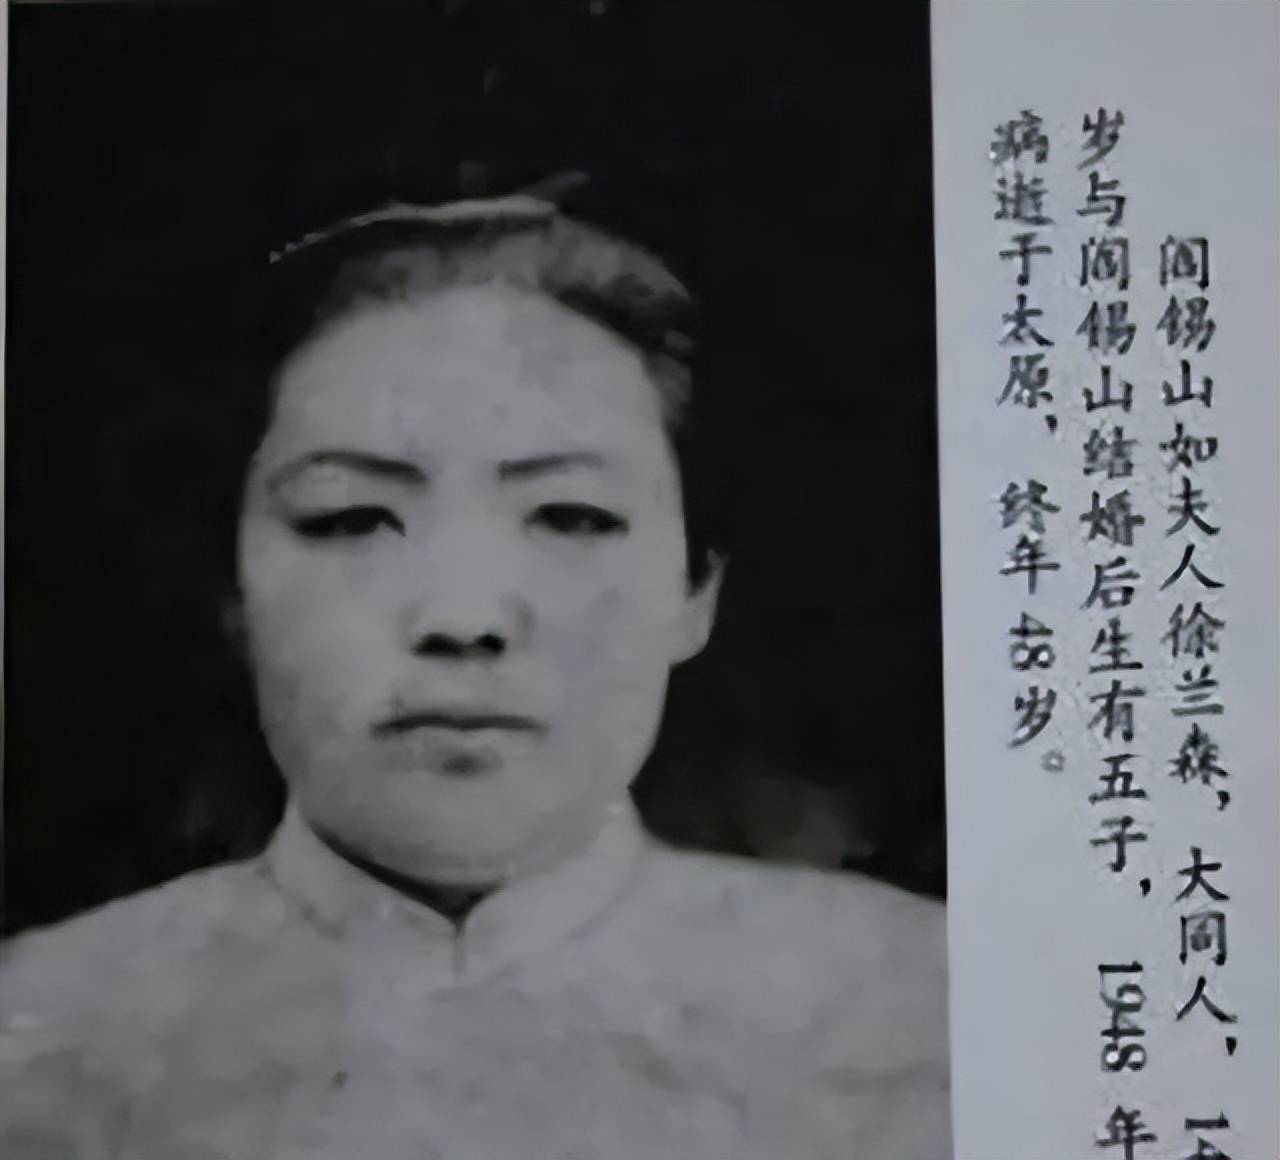 阎锡山如夫人徐兰森，大同人，一
岁与阎锡山结婚后生有五子，1948年
病逝于太原，终年48岁。